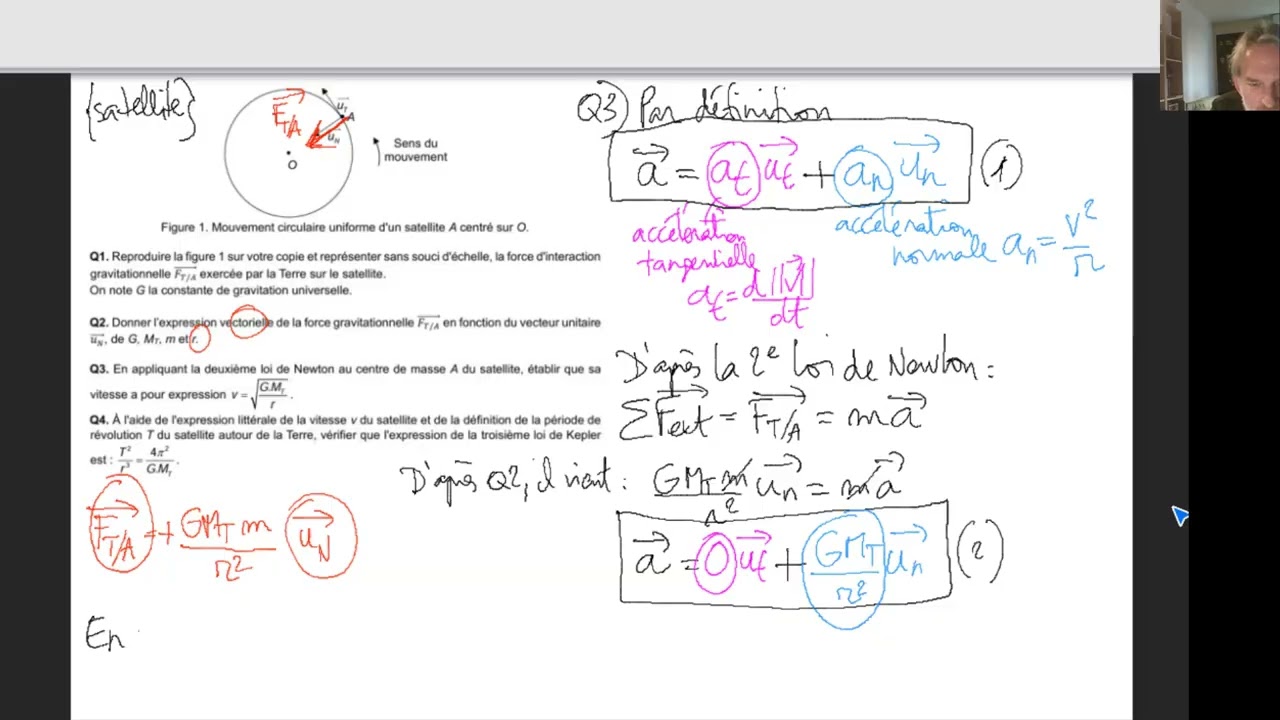 {satellite}
F_T/A
u_T
A
u_N
O
Sens du
mouvement
Figure 1. Mouvement circulaire uniforme d'un satellite A centré sur O.
Q1. Reproduire la figure 1 sur votre copie et représenter sans souci d'échelle, la force d'interaction
gravitationnelle F_T/A exercée par la Terre sur le satellite.
On note G la constante de gravitation universelle.
Q2. Donner l'expression vectorielle de la force gravitationnelle F_T/A en fonction du vecteur unitaire
u_N, de G, M_T, m et r.
Q3. En appliquant la deuxième loi de Newton au centre de masse A du satellite, établir que sa
vitesse a pour expression v = √(G.M_T / r).
Q4. À l'aide de l'expression littérale de la vitesse v du satellite et de la définition de la période de
révolution T du satellite autour de la Terre, vérifier que l'expression de la troisième loi de Kepler
est : T²/r³ = 4π²/G.M_T.
F_T/A = + GM_T m / r² u_N
En
Q3) Par définition
a = a_t u_t + a_n u_n (1)
accélération
tangentielle
a_t = d||V|| / dt
accélération
normale a_n = V² / r
D'après la 2e loi de Newton :
ΣF_ext = F_T/A = ma
D'après Q2, il vient : GM_T m / r² u_n = ma
a = 0 u_t + GM_T / r² u_n (2)